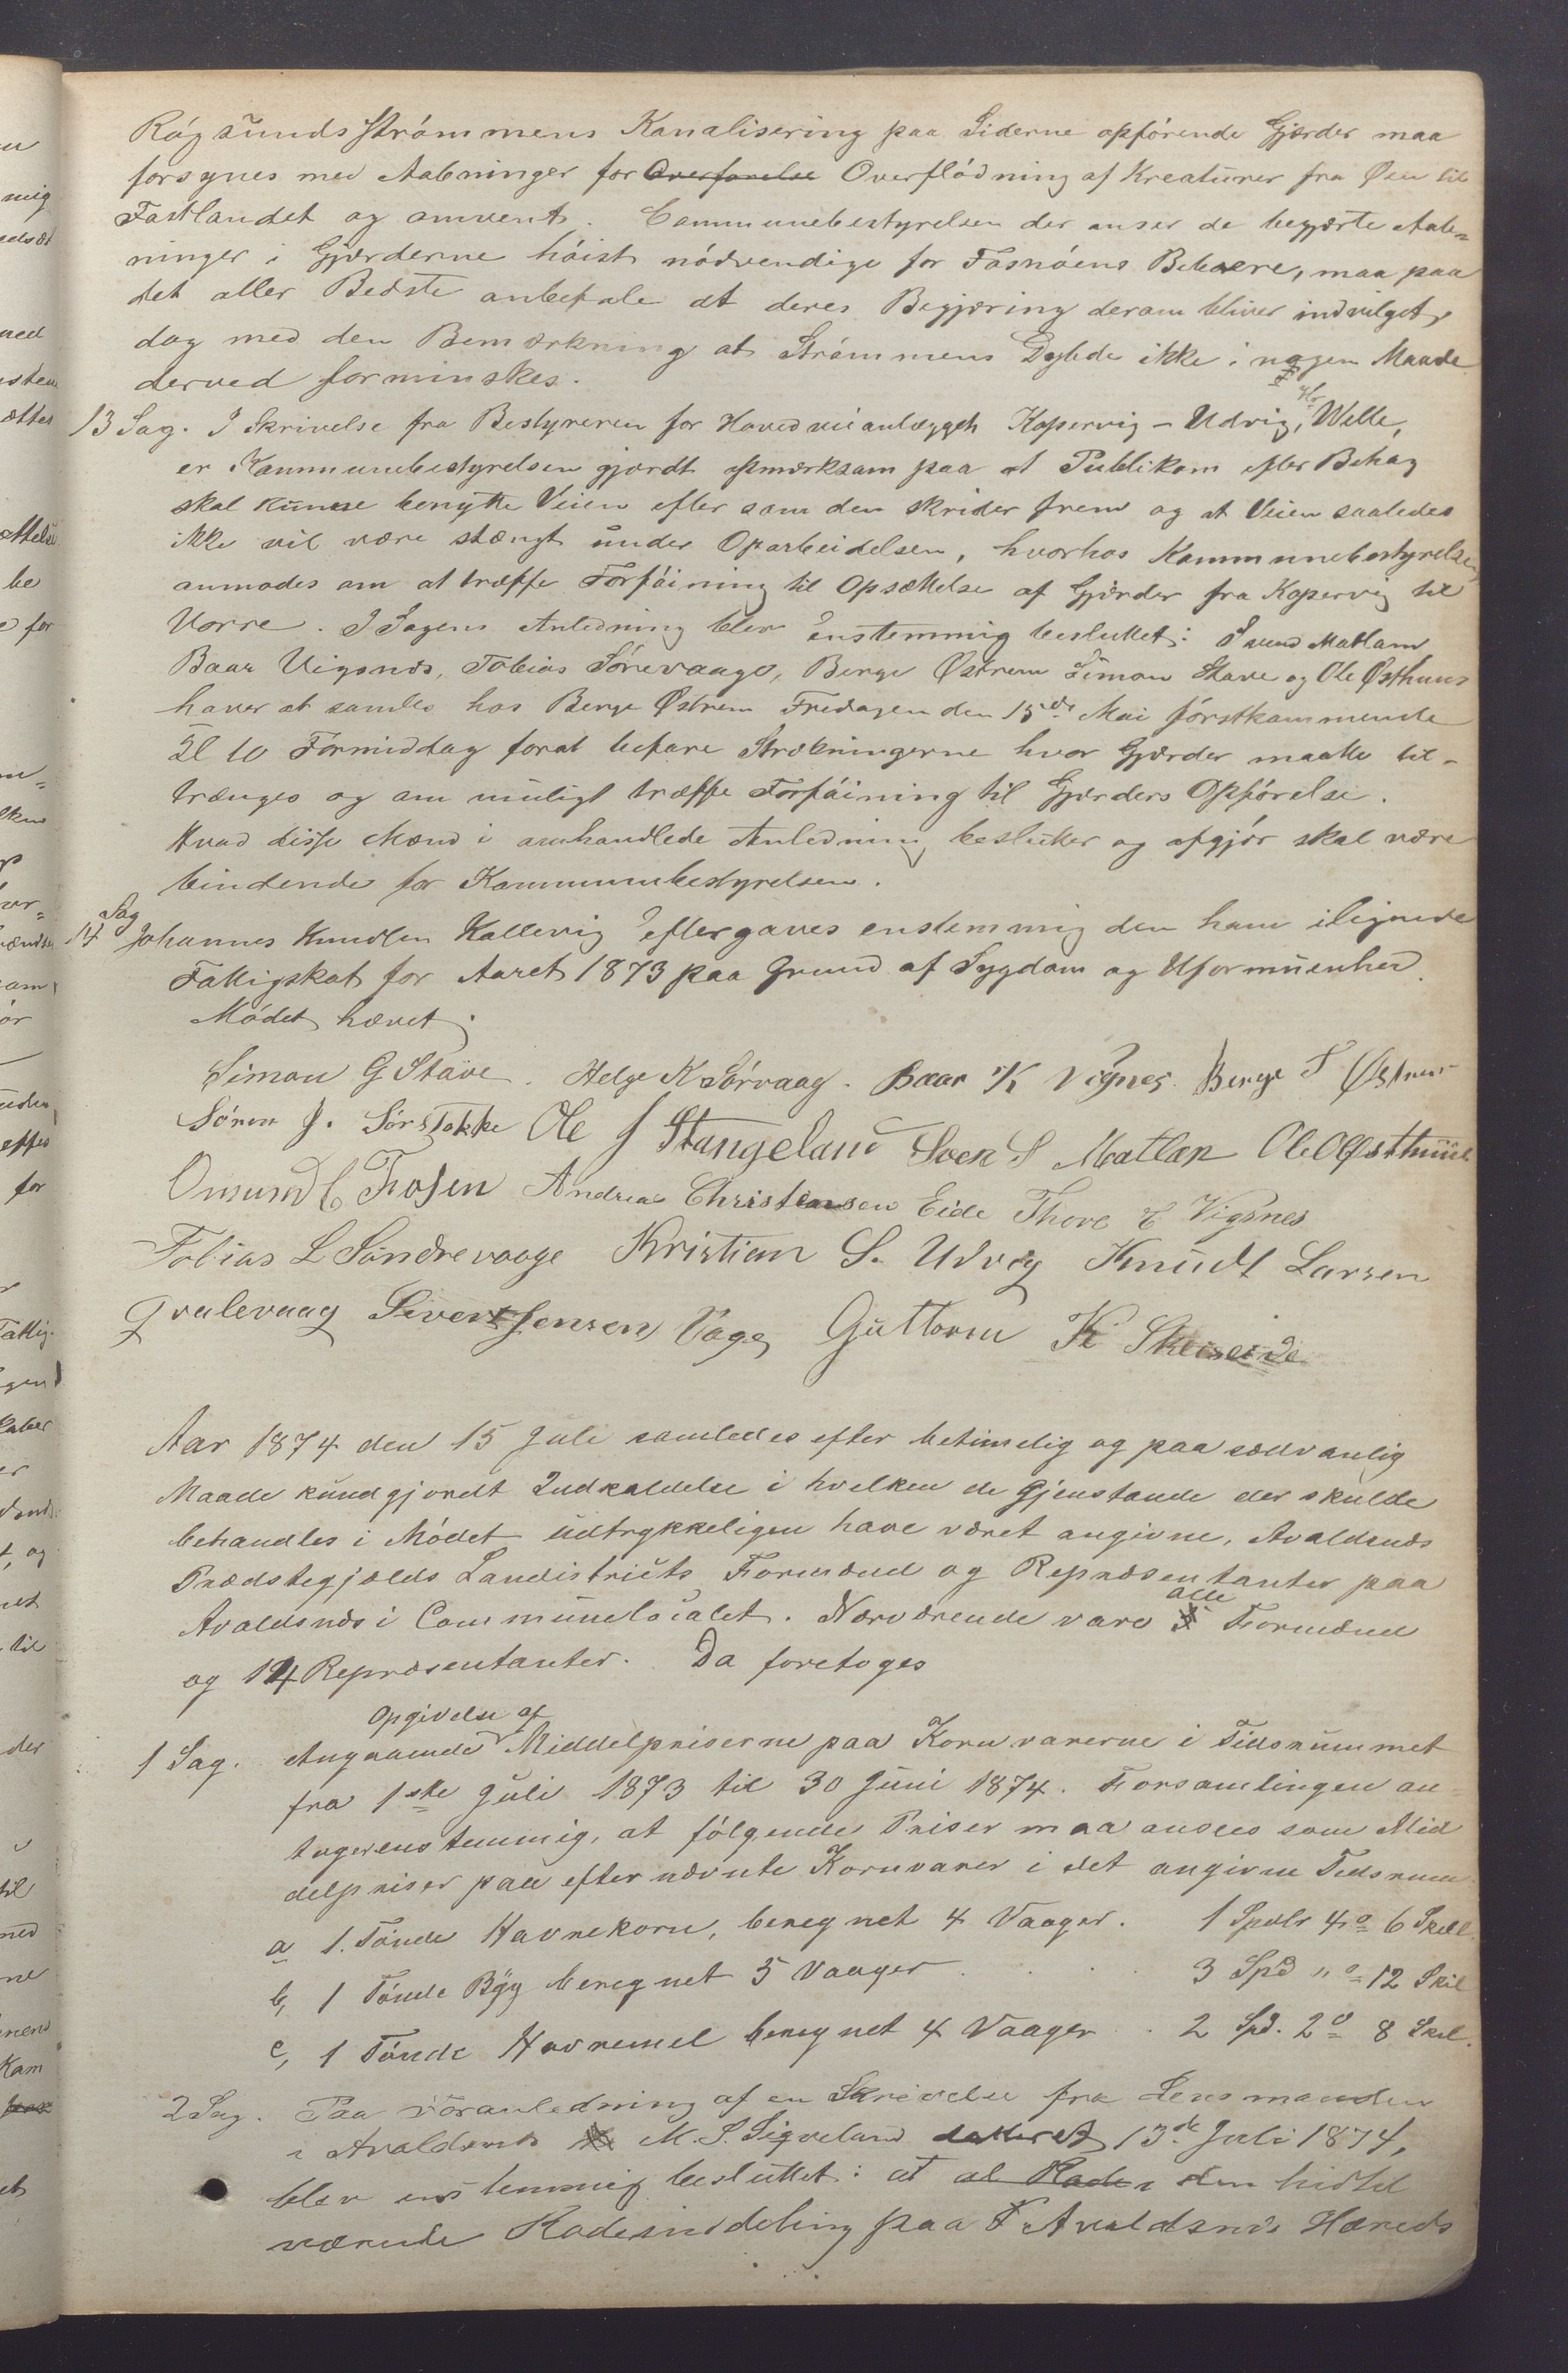 Røgsunds Strømmens Kanalisering paa Siderne opførende Gjærder maa
forsynes med Aabninger for Overførelse Overflødning af Kreaturer fra Øen til
Fastlandet og omvent. Communebestyrelsen der anser de begjærte Aab=
ninger i Gjærderne høist nødvendige for Fosnøens Beboere, maa paa
det aller Bedste anbefale at deres Begjæring derom bliver indvilget,
dog med den Bemærkning at Strømmens Dybde ikke i nogen Maade
derved forminskes.
13 Sag. I Skrivelse fra Bestyreren for Hovedveianlægget Kopervig - Udvig, Hr Welle,
er Kommunebestyrelsen gjordt opmærksom paa at Publikum efter Behag
skal kunne benytte Veien efter som den skrider frem og at Veien saaledes
ikke vil være stængt under Oparbeidelsen, hvorhos Kommunebestyrelsen
anmodes om at træffe Forføining til Opsættelse af Gjærder fra Kopervig til
Vorre. I Sagens Anledning blev Enstemmig besluttet: Svend Matlam
Baar Vigsnæs, Tobias Sørevaage, Berge Østrem Simon Stave og Ole Østhuus
haver at samles hos Berge Østrem Fredagen den 15de Mai førstkommende
Kl 10 Formiddag forat befare Strækningerne hvor Gjærder maatte til-
trænges og om muligt træffe Forføining til Gjærders Opførelse.
Hvad disse Mænd i omhandlede Anledning beslutter og afgjør skal være
bindende for Kommunebestyrelsen.
14 Sag Johannes Knudsen Kallevig Eftergaves enstemmig den ham ilignede
Fattigskat for Aaret 1873 paa Grund af Sygdom og Uformuenhed.
Mødet hævet.
Simon G Stave. Helge K Sørvaag. Baar K Vignes. Berge T Østrem
Søren J. Sørstokke Ole J Stangeland Sven S Matlan Ole O Østhuus
Omund C Fosen Andreas Christensen Eide Thore E Vigsnes
Tobias L Søndrevaage Kristian S. Udvig Knudt Larsen
Qvalevaag Sivert Jensen Vage Guttorm K Skeiseide
Aar 1874 den 15 Juli samledes efter betimelig og paa sædvanlig
Maade kundgjordt Indkaldelse i hvilken de Gjenstande der skulde
behandles i Mødet udtrykkeligen have været angivne, Avaldsnæs
Prædstegjælds Landistricts Formænd og Repræsentanter paa
Avaldsnæs i Communelocalet. Nærværende vare alle Formænd
og 14 Repræsentanter. Da foretoges
1 Sag. Angaaende Opgivelse af Middelpriserne paa Kornvarerne i Tidsrummet
fra 1ste Juli 1873 til 30 Juni 1874. Forsamlingen an
tager enstemmig, at følgende Priser maa ansees som Mid
delpriser paa efternævnte Kornvarer i det angivne Tidsrum
a 1. Tønde Havrekorn, beregnet 4 Vaager. 1 Spdlr 4o 6 Skil.
b, 1 Tønde Byg beregnet 5 Vaager . . . . 3 Spd "o 12 Skil
c, 1 Tønde Havremel beregnet 4 Vaager . . 2 Spd. 2o 8 Skil.
2 Sag. Paa Foranledning af en Skrivelse fra Lensmanden
i Avaldsnæs M. S. Sigveland dateret 13de Juli 1874,
blev enstemmig besluttet: at al Rode den hidtil
værende Rodeinddeling paa Avaldsnæs Hæreds